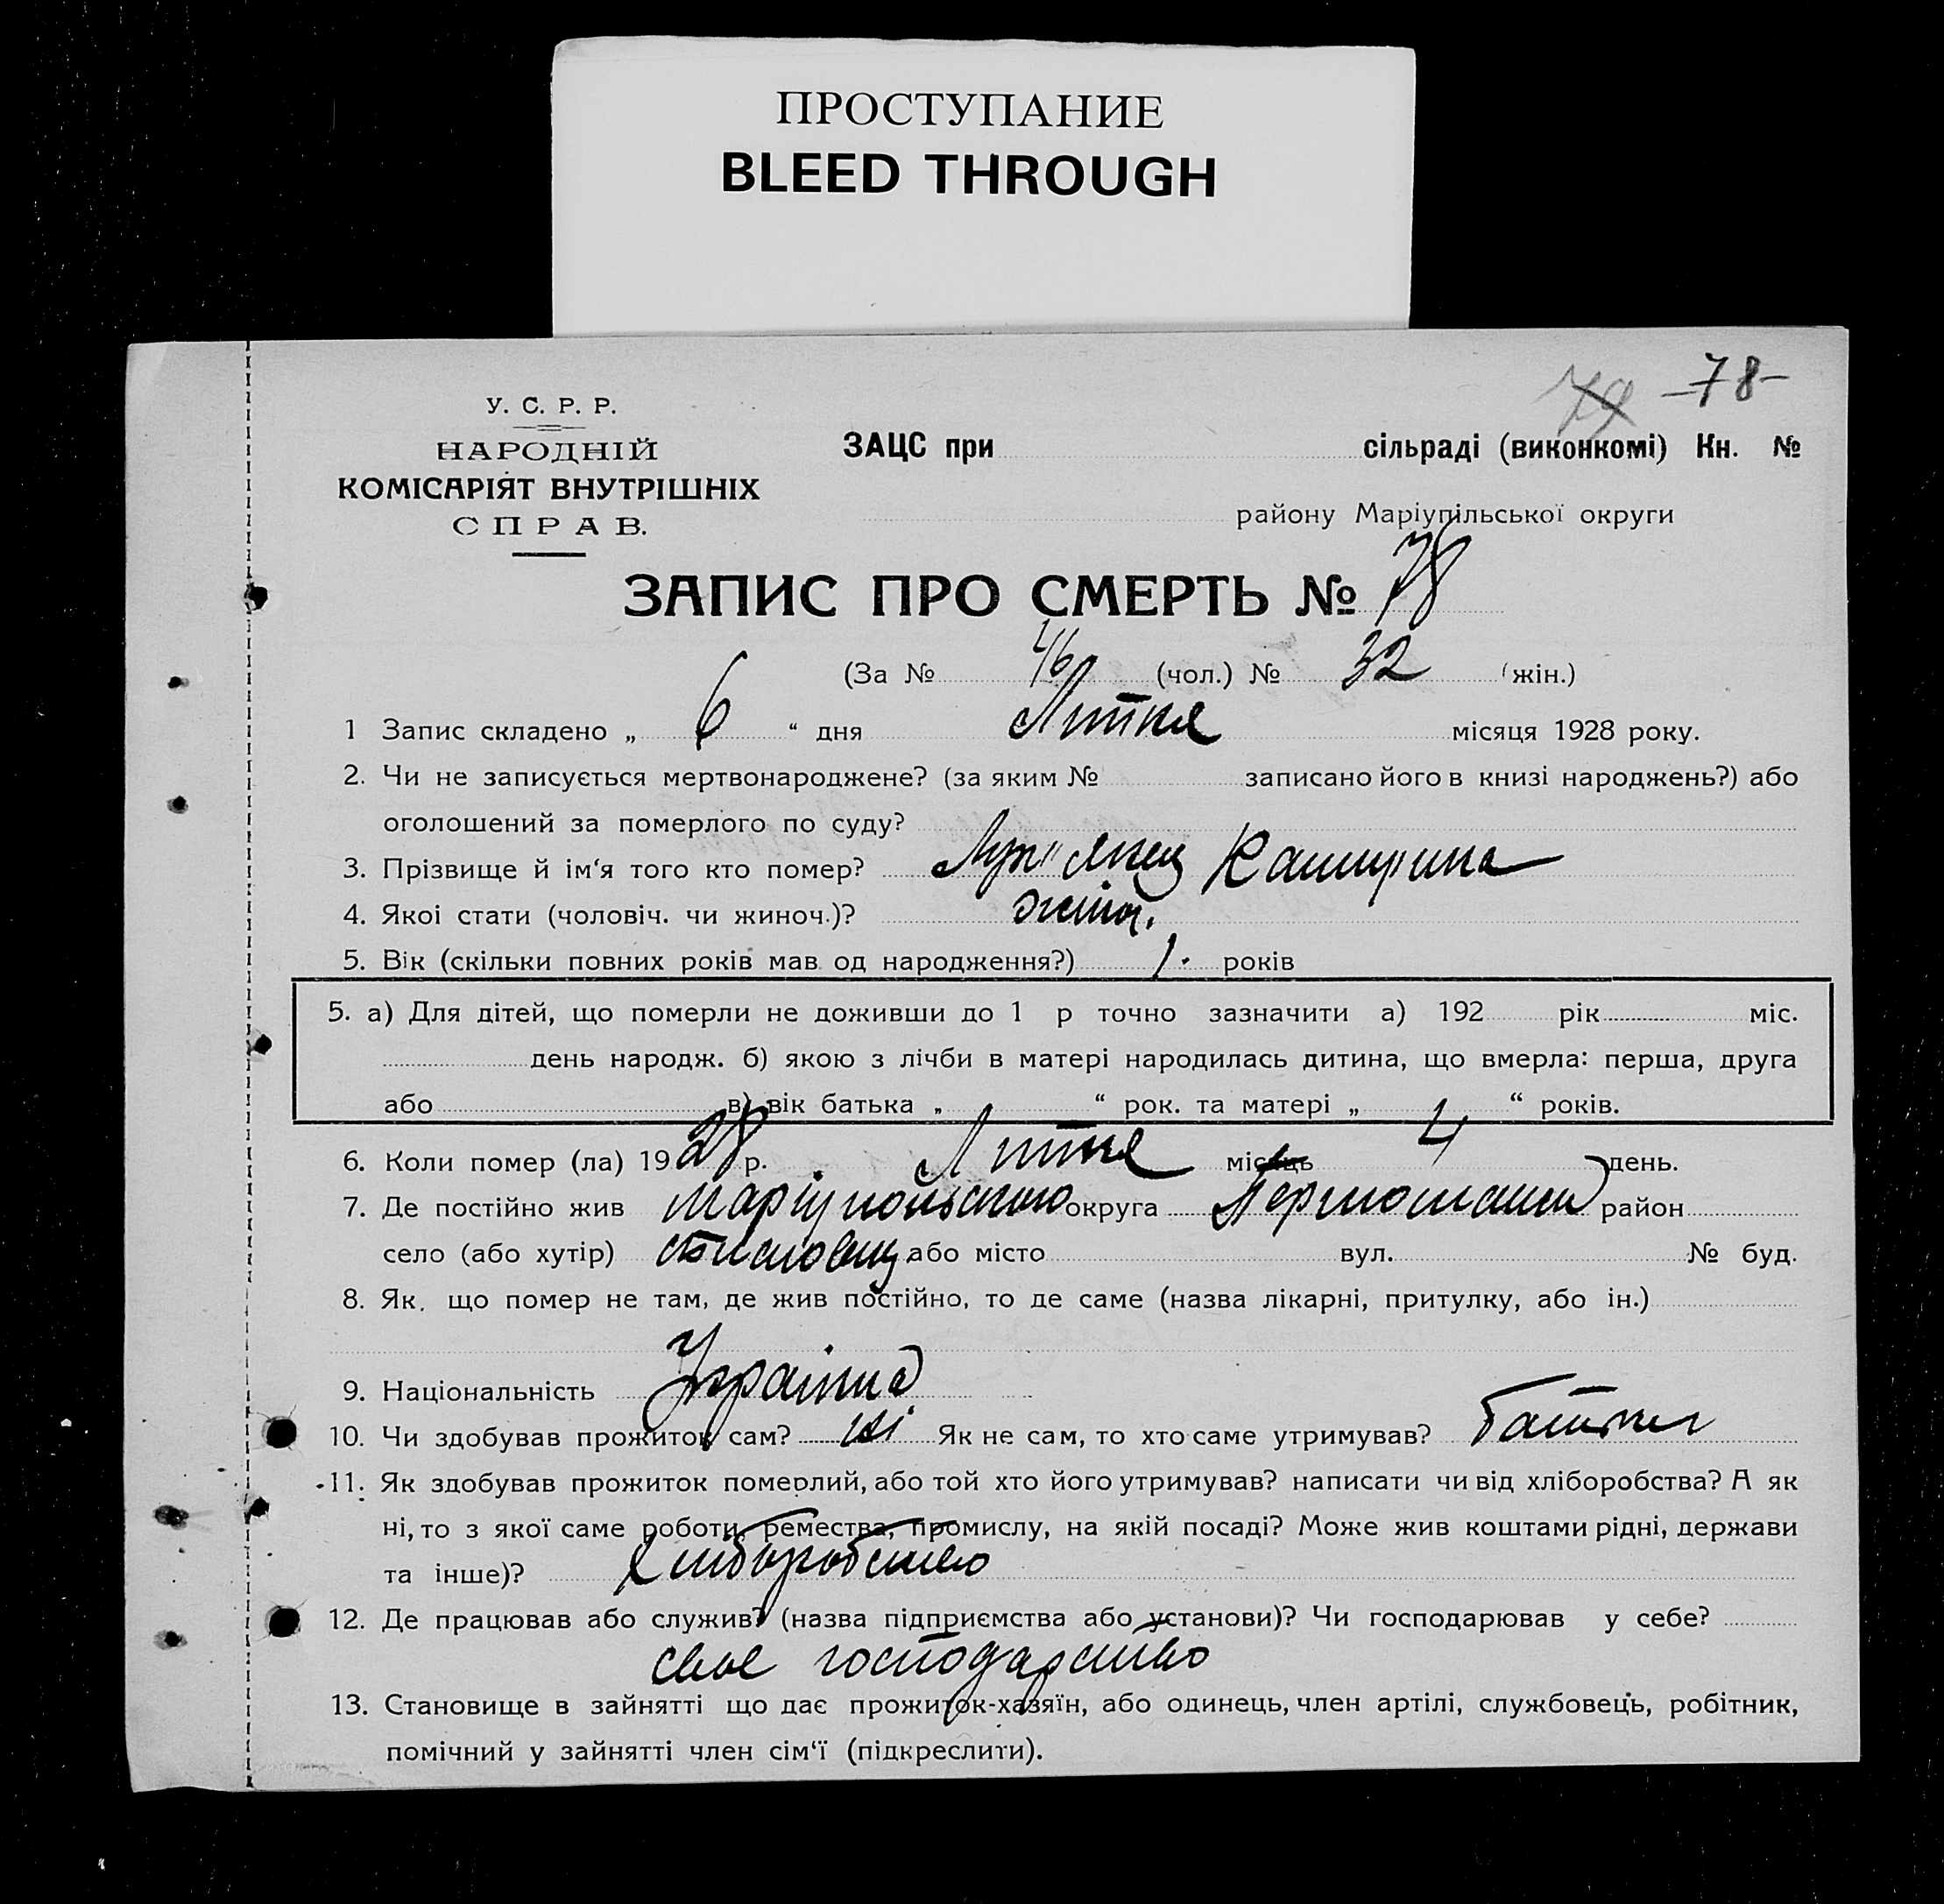 ПРОСТУПАНИЕ
BLEED THROUGH
79 –78–
У. С. Р. Р.
НАРОДНІЙ
КОМІСАРІЯТ ВНУТРІШНІХ
СПРАВ.
ЗАЦС при сільраді (виконкомі) Кн. №
району Маріупільської округи
ЗАПИС ПРО СМЕРТЬ № 78
(За № 46 (чол.) № 32 (жін.)
1 Запис складено „ 6 “ дня Липня місяця 1928 року.
2. Чи не записується мертвонароджене? (за яким № записано його в книзі народжень?) або
оголошений за померлого по суду?
3. Прізвище й ім‘я того кто помер?
4. Якоі стати (чоловіч. чи жиноч.)? жіноч.
5. Вік (скільки повних років мав од народження?) 1. років
5. а) Для дітей, що померли не доживши до 1 р точно зазначити а) 192 рік міс.
день народж. б) якою з лічби в матері народилась дитина, що вмерла: перша, друга
або в) вік батька „ “ рок. та матері „ “ років.
6. Коли помер (ла) 1928 р. Липня місяць 4 день.
7. Де постійно жив округа район
село (або хутір) або місто вул. № буд.
8. Як, що помер не там, де жив постійно, то де саме (назва лікарні, притулку, або ін.)
9. Національність
10. Чи здобував прожиток сам? ні Як не сам, то хто саме утримував? Батьки
11. Як здобував прожиток померлий, або той хто його утримував? написати чи від хліборобства? А як
ні, то з якої саме роботи, ремества, промислу, на якій посаді? Може жив коштами рідні, держави
та інше)? Хліборобство
12. Де працював або служив? (назва підприємства або установи)? Чи господарював у себе?
своє господарство
13. Становище в зайнятті що дає прожиток-хазяїн, або одинець, член артілі, службовець, робітник,
помічний у зайнятті член сім‘ї (підкреслити).